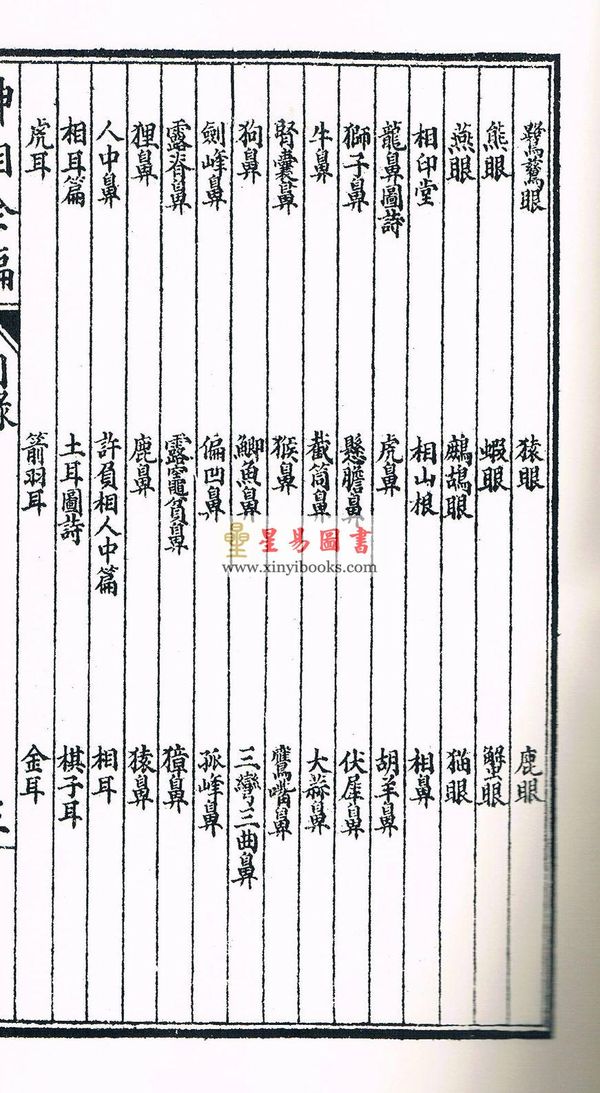 鷺鷥眼　猿眼　鹿眼
熊眼　蝦眼　蟹眼
燕眼　鷓鴣眼　猫眼
相印堂　相山根　相鼻
龍鼻圖詩　虎鼻　胡羊鼻
獅子鼻　懸膽鼻　伏犀鼻
牛鼻　截筒鼻　大蒜鼻
腎囊鼻　猴鼻　鷹嘴鼻
狗鼻　鯽魚鼻　三彎三曲鼻
劍峰鼻　偏凹鼻　孤峰鼻
露脊鼻　露竈鼻　獐鼻
狸鼻　鹿鼻　猿鼻
人中鼻　許負相人中篇　相耳
相耳篇　土耳圖詩　棋子耳
虎耳　箭羽耳　金耳
神相全編　目錄　三
星易圖書
www.xinyibooks.com